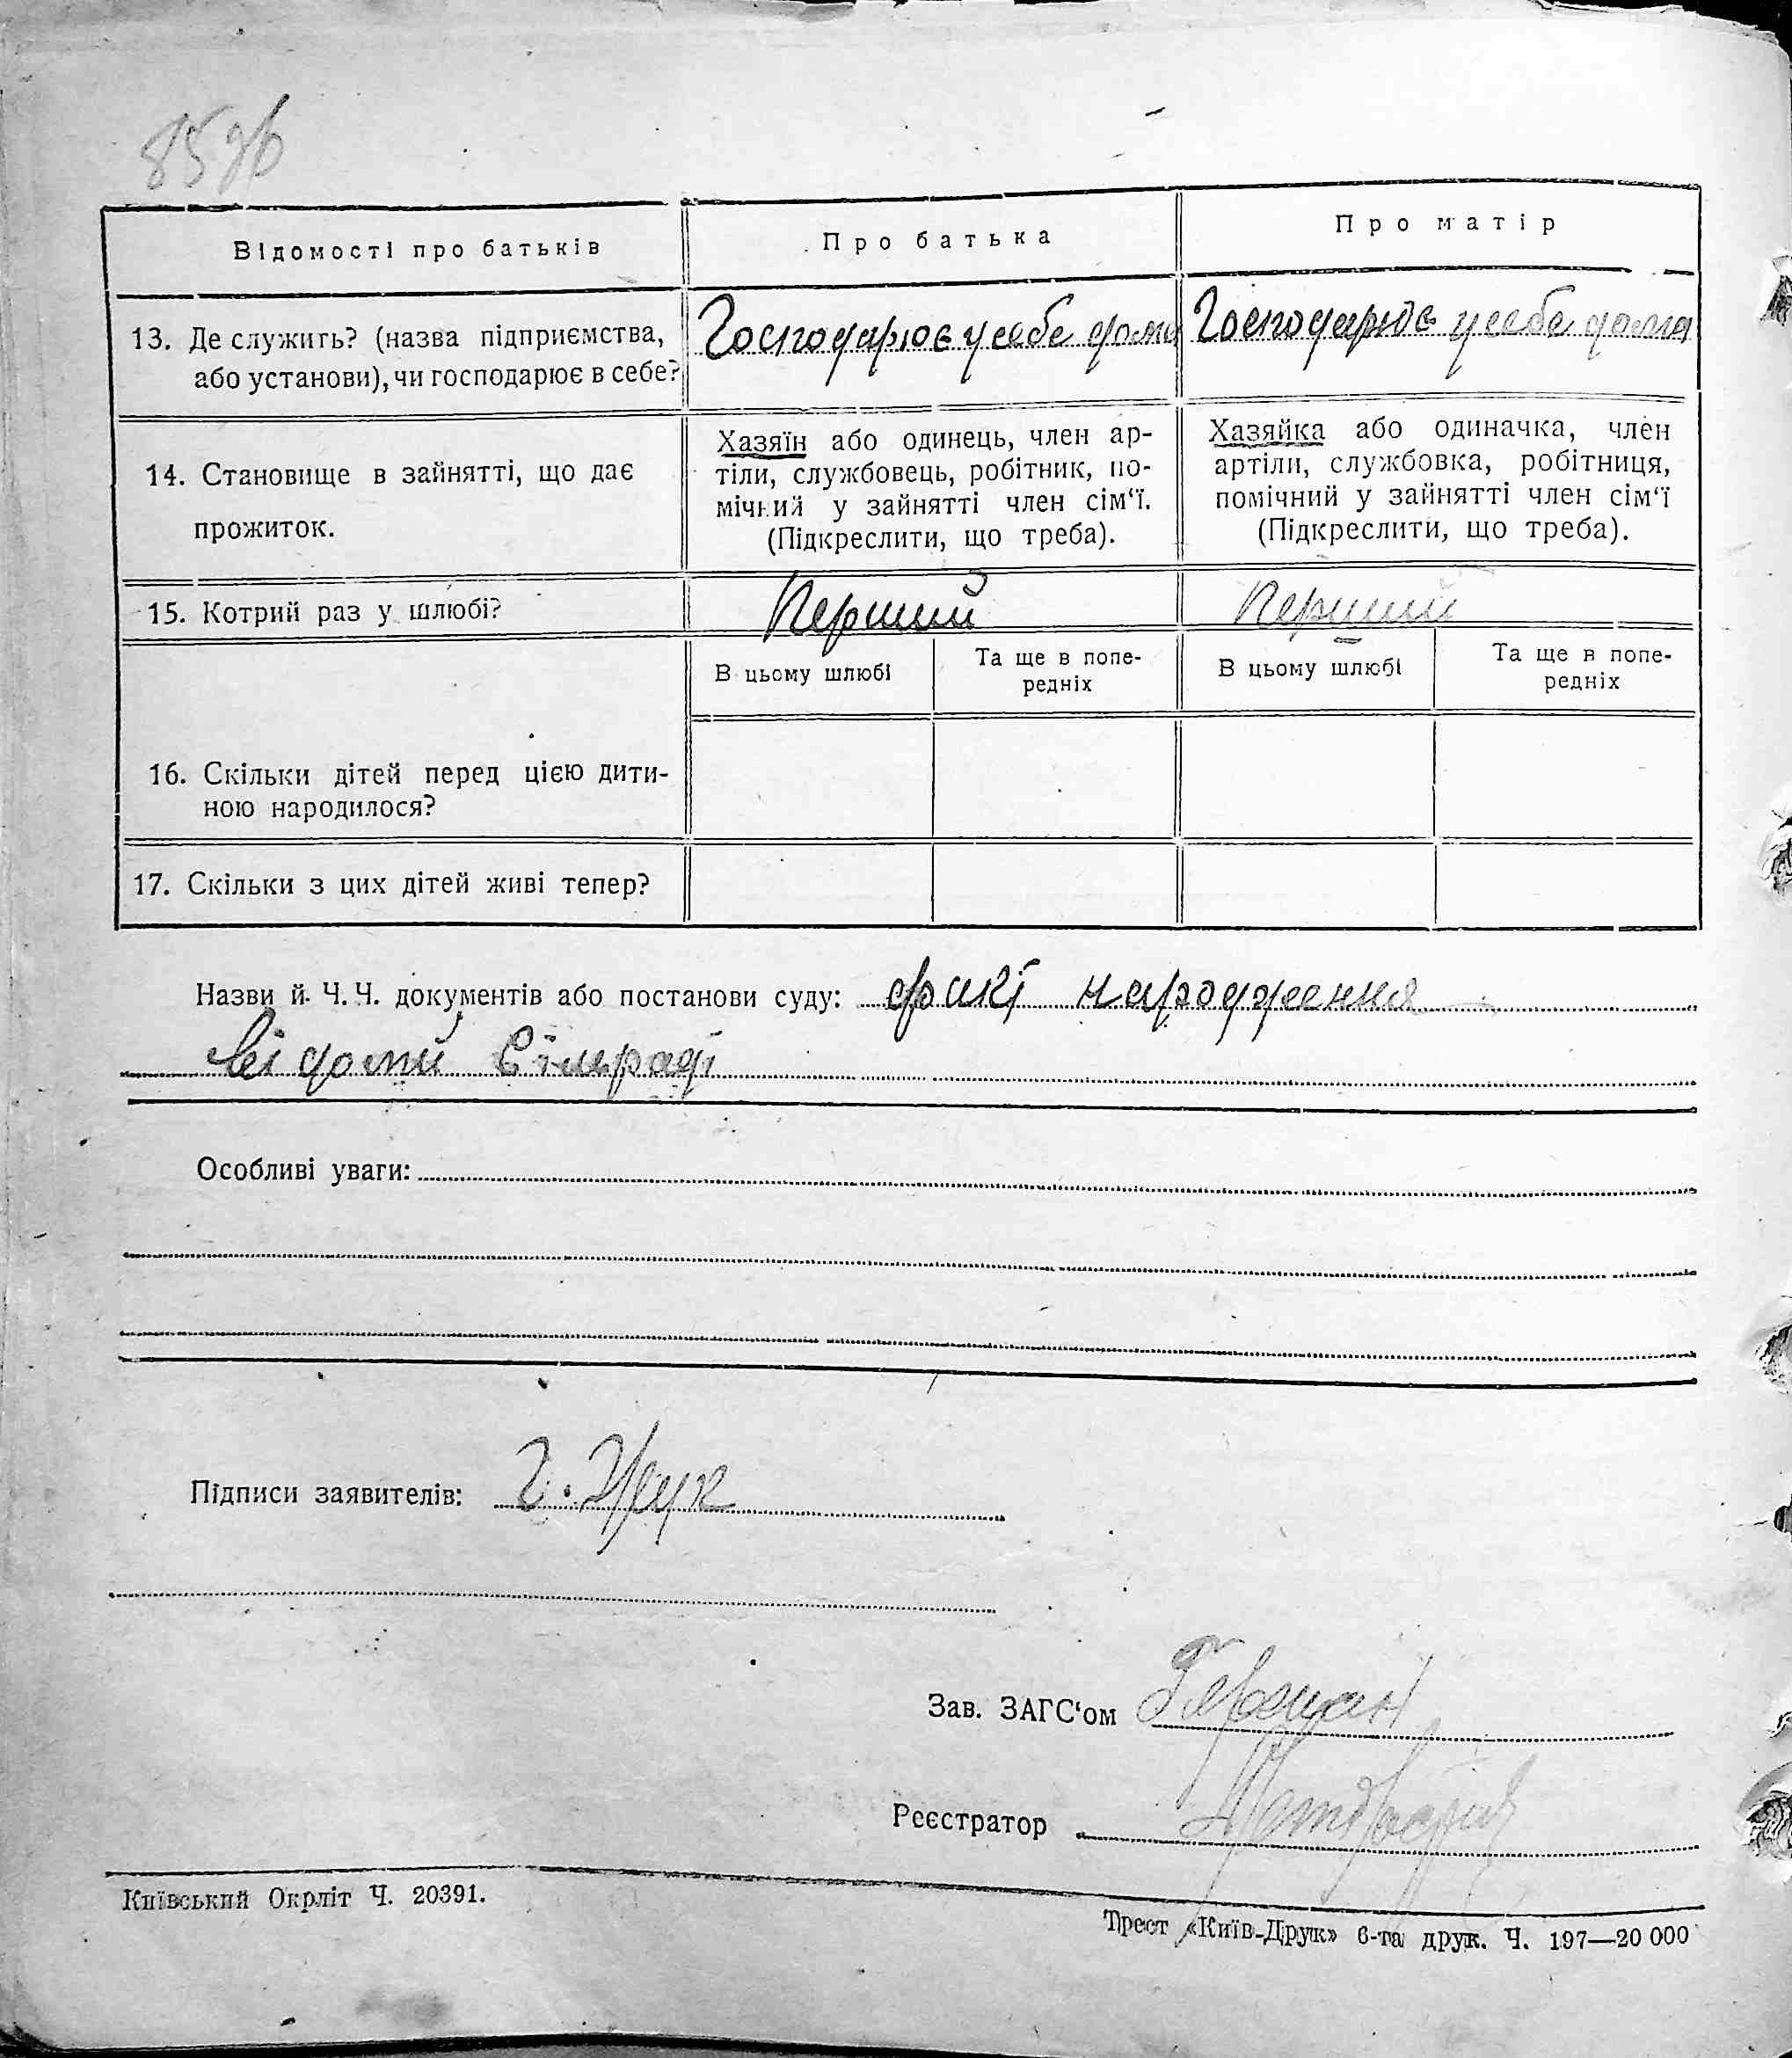 Відомості про батьків
Про батька
Про матір
13. Де служить? (назва підприємства,
або установи), чи господарює в себе?
Господарює у себе дома
Господарює у себе дома
14. Становище в зайнятті, що дає
прожиток.
Хазяїн або одинець, член ар-
тіли, службовець, робітник, по-
мічний у зайнятті член сім‘ї.
(Підкреслити, що треба).
Хазяйка або одиначка, член
артіли, службовка, робітниця,
помічний у зайнятті член сім‘ї
(Підкреслити, що треба).
15. Котрий раз у шлюбі?
Перший
Перший
В цьому шлюбі
Та ще в попе-
редніх
В цьому шлюбі
Та ще в попе-
редніх
16. Скільки дітей перед цією дити-
ною народилося?
17. Скільки з цих дітей живі тепер?
Назви й Ч. Ч. документів або постанови суду: факт народження
відомий Сільраді
Особливі уваги:
Підписи заявителів: Г. Жук
Зав. ЗАГС‘ом
Реєстратор
Київський Окрліт Ч. 20391.
Трест «Київ-Друк» 6-та друк. Ч. 197—20 000